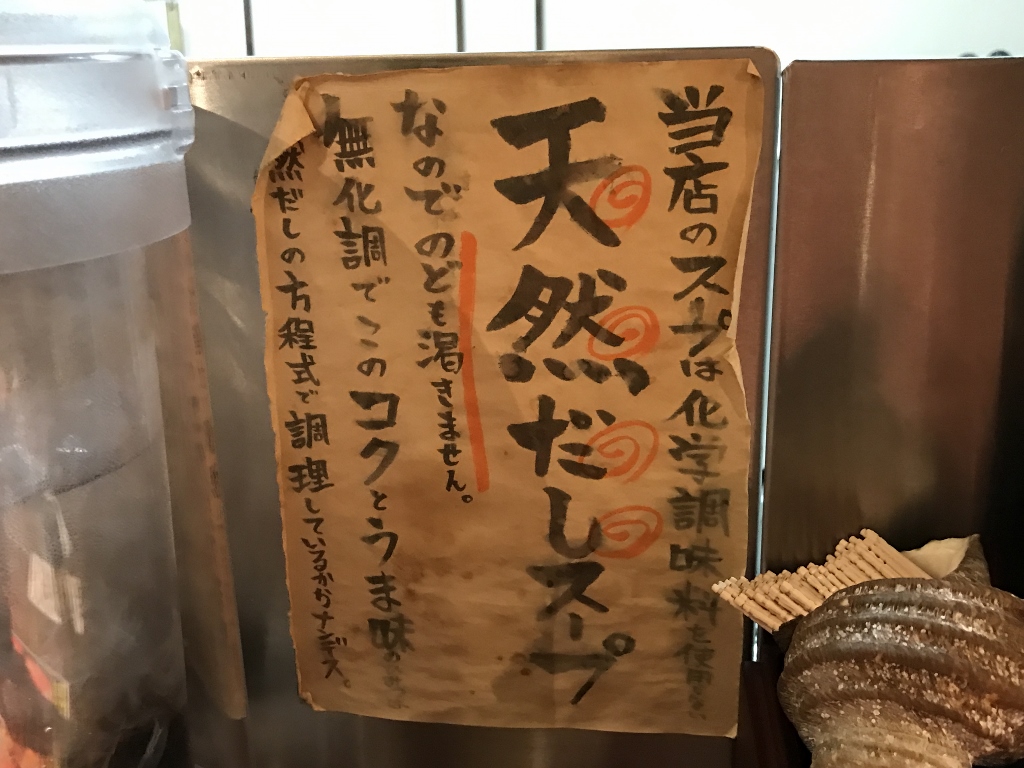 当店のスープは化学調味料を使用しない
天然だしスープ
なのでのども渇きません。
無化調でこのコクとうま味
然だしの方程式で調理しているかナンデス。